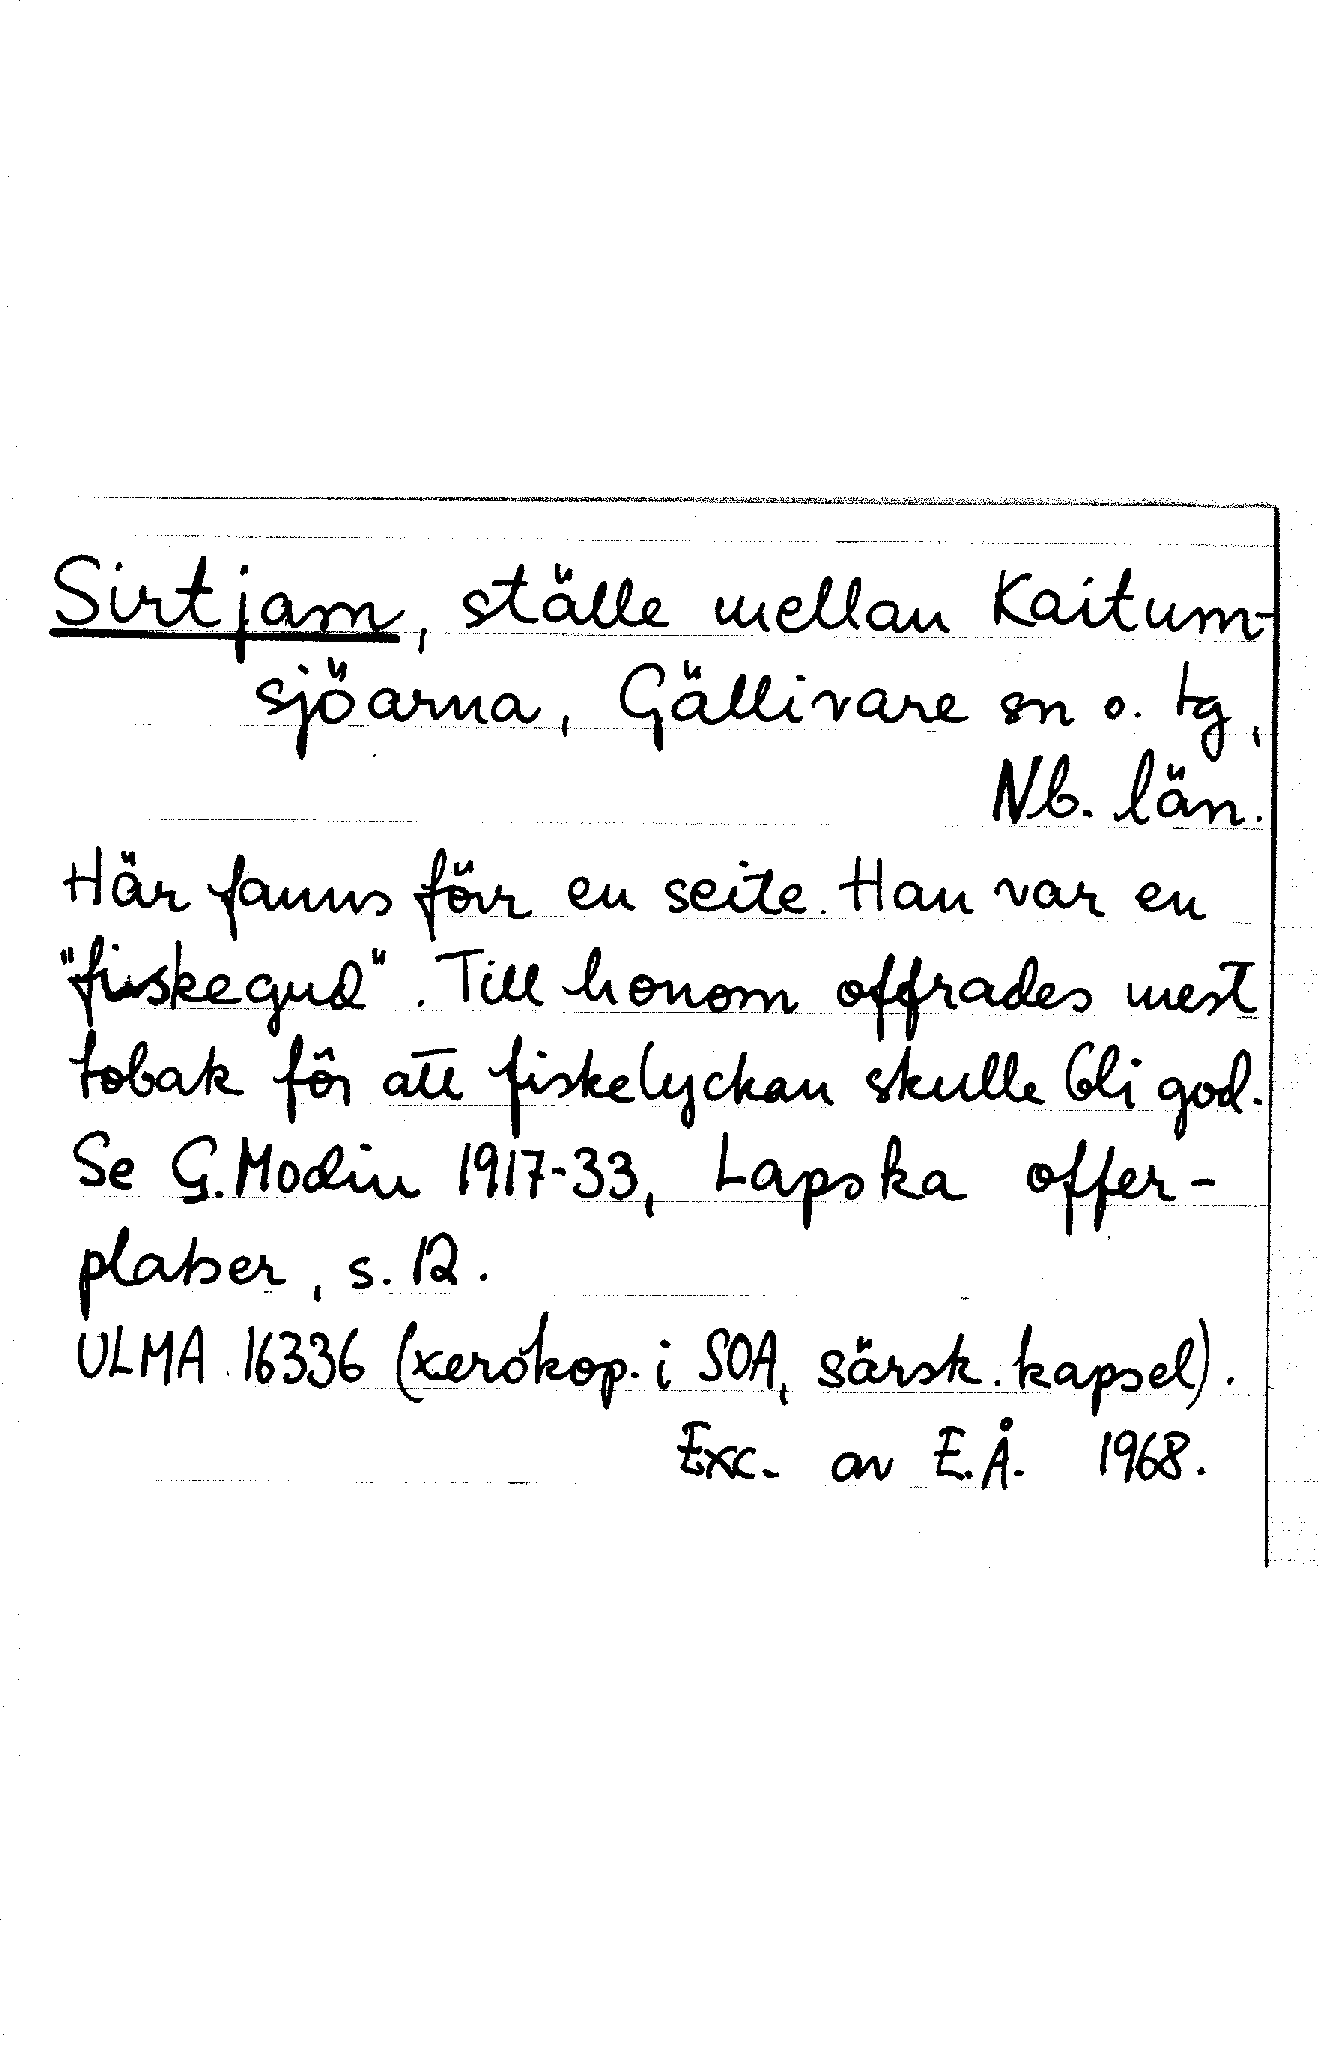 Sirtjam, ställe mellan Kaitum-
sjöarna, Gällivare sn o. tg,
Nb. län.
Här fanns förr en seite. Han var en
"fiskegud". Till honom offrades mest
tobak för att fiskelyckan skulle bli god.
Se G. Modin 1917-33, Lapska offer-
platser, s. 12.
ULMA 16336 (xerokop. i SOA, särsk. kapsel).
Exc. av E.Å. 1968.